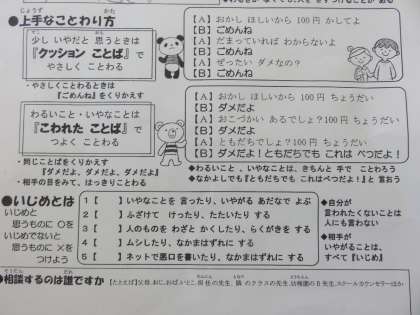 ●上手なことわり方
じょうず
かた
少し いやだと 思うときは
『クッション ことば』で
やさしく ことわる
・やさしくことわるときは
『ごめんね』をくりかえす
【A】おかし ほしいから 100円 かしてよ
【B】ごめんね
【A】だまっていれば わからないよ
【B】ごめんね
【A】ぜったい ダメなの?
【B】ごめんね
わるいこと・いやなことは
『こわれた ことば』で
つよく ことわる
・同じことばをくりかえす
『ダメだよ、ダメだよ、ダメだよ』
・相手の目をみて、はっきりことわる
【A】おかし ほしいから 100円 ちょうだい
【B】ダメだよ
【A】おこづかい あるでしょ?100円 ちょうだい
【B】ダメだよ
【A】ともだちでしょ?100円 ちょうだい
【B】ダメだよ!ともだちでも これは べつだよ!
◆わるいこと、いやなことは、きちんと 手で ことわろう
◆なかよしでも『ともだちでも これはべつだよ!』と 言おう
●いじめとは
いじめと
思うものに 〇を
いじめでないと
思うものに ×を
つけよう
1【 】いやなことを 言ったり、いやがる あだなで よぶ
2【 】ふざけて けったり、たたいたり する
3【 】人のものを わざと かくしたり、らくがきを する
4【 】ムシしたり、なかまはずれに する
5【 】ネットで悪口を書いたり、なかまはずれに する
◆自分が
言われたくないことは
人にも言わない
◆相手が
いやがることは、
すべて『いじめ』
◆相談するのは誰ですか
そうだん
【たとえば】父母、おじ、おば、いとこ、担任の先生、隣のクラスの先生、幼稚園のB先生、スクールカウンセラーほか